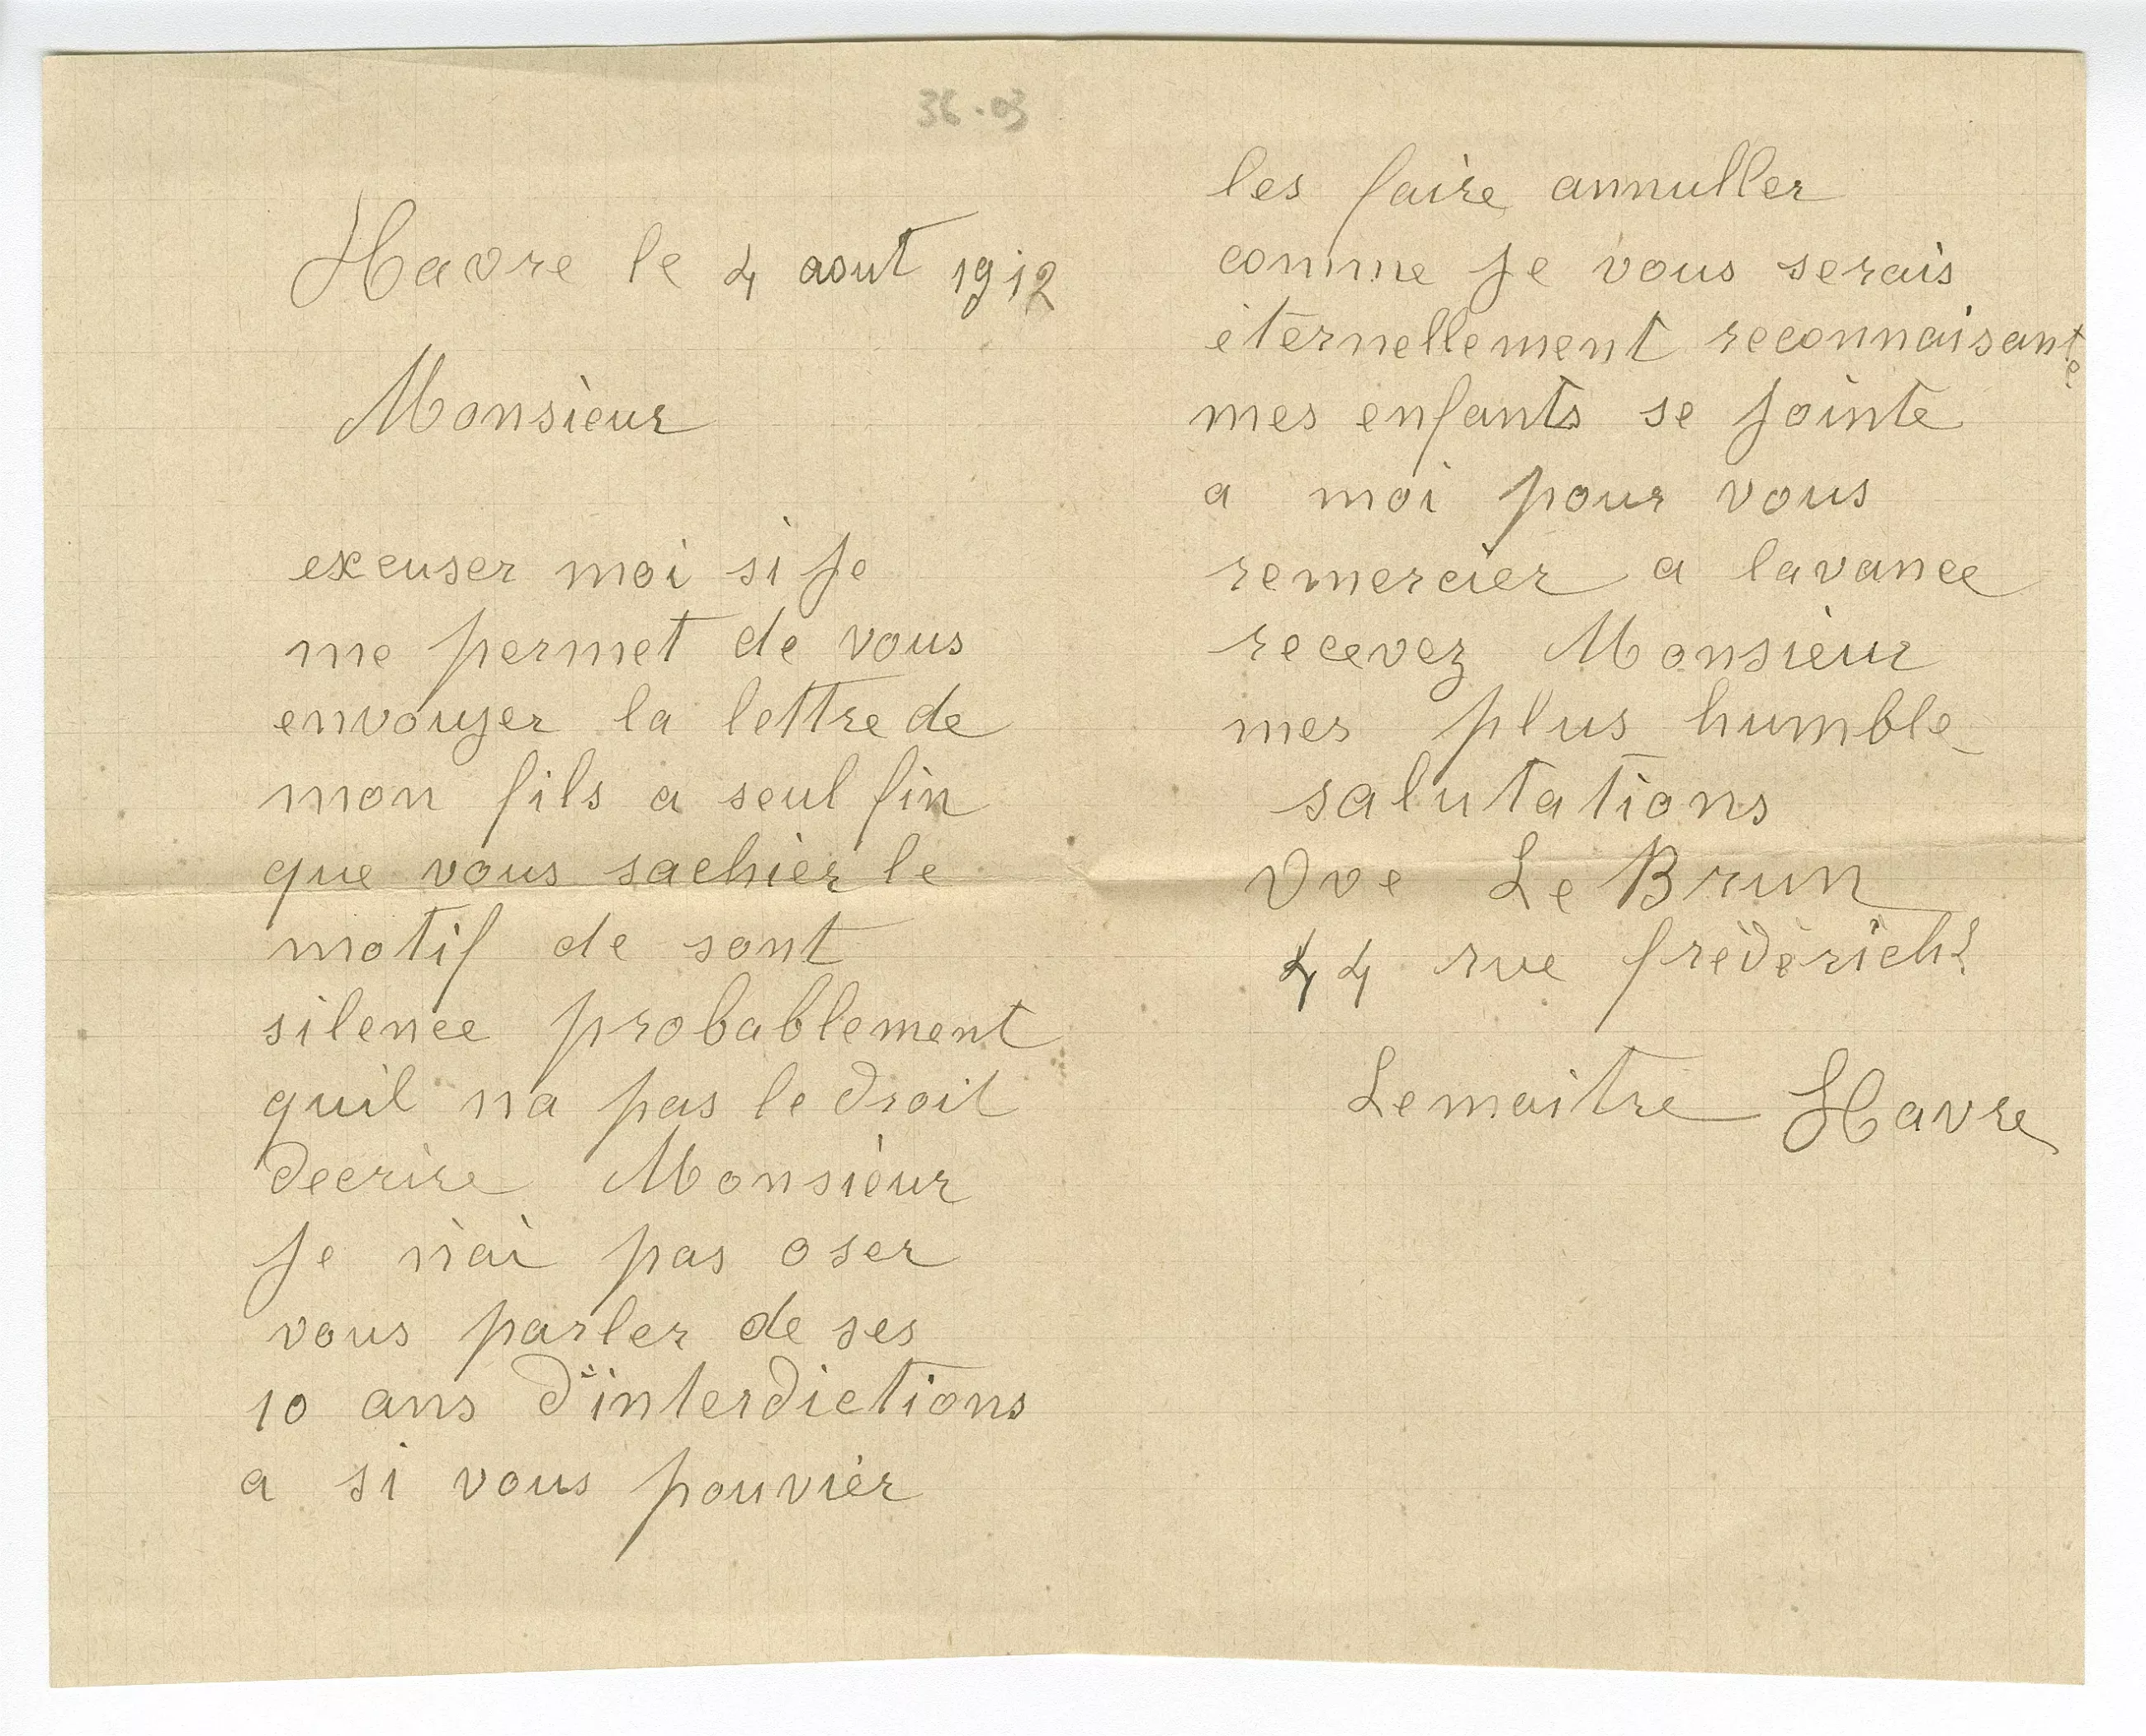 36.03
Havre le 4 aout 1912
Monsieur
excuser moi si je
me permet de vous
envouyer la lettre de
mon fils a seul fin
que vous sachier le
motif de sont
silence probablement
quil na pas le droit
decrire Monsieur
je n'ai pas oser
vous parler de ses
10 ans d'interdictions
a si vous pouvier
les faire annuller
comme je vous serais
éternellement reconnaisante
mes enfants se jointe
a moi pour vous
remercier a lavance
recevez Monsieur
mes plus humble
salutations
Vve Le Brun
44 rue frédérich
Lemaitre Havre